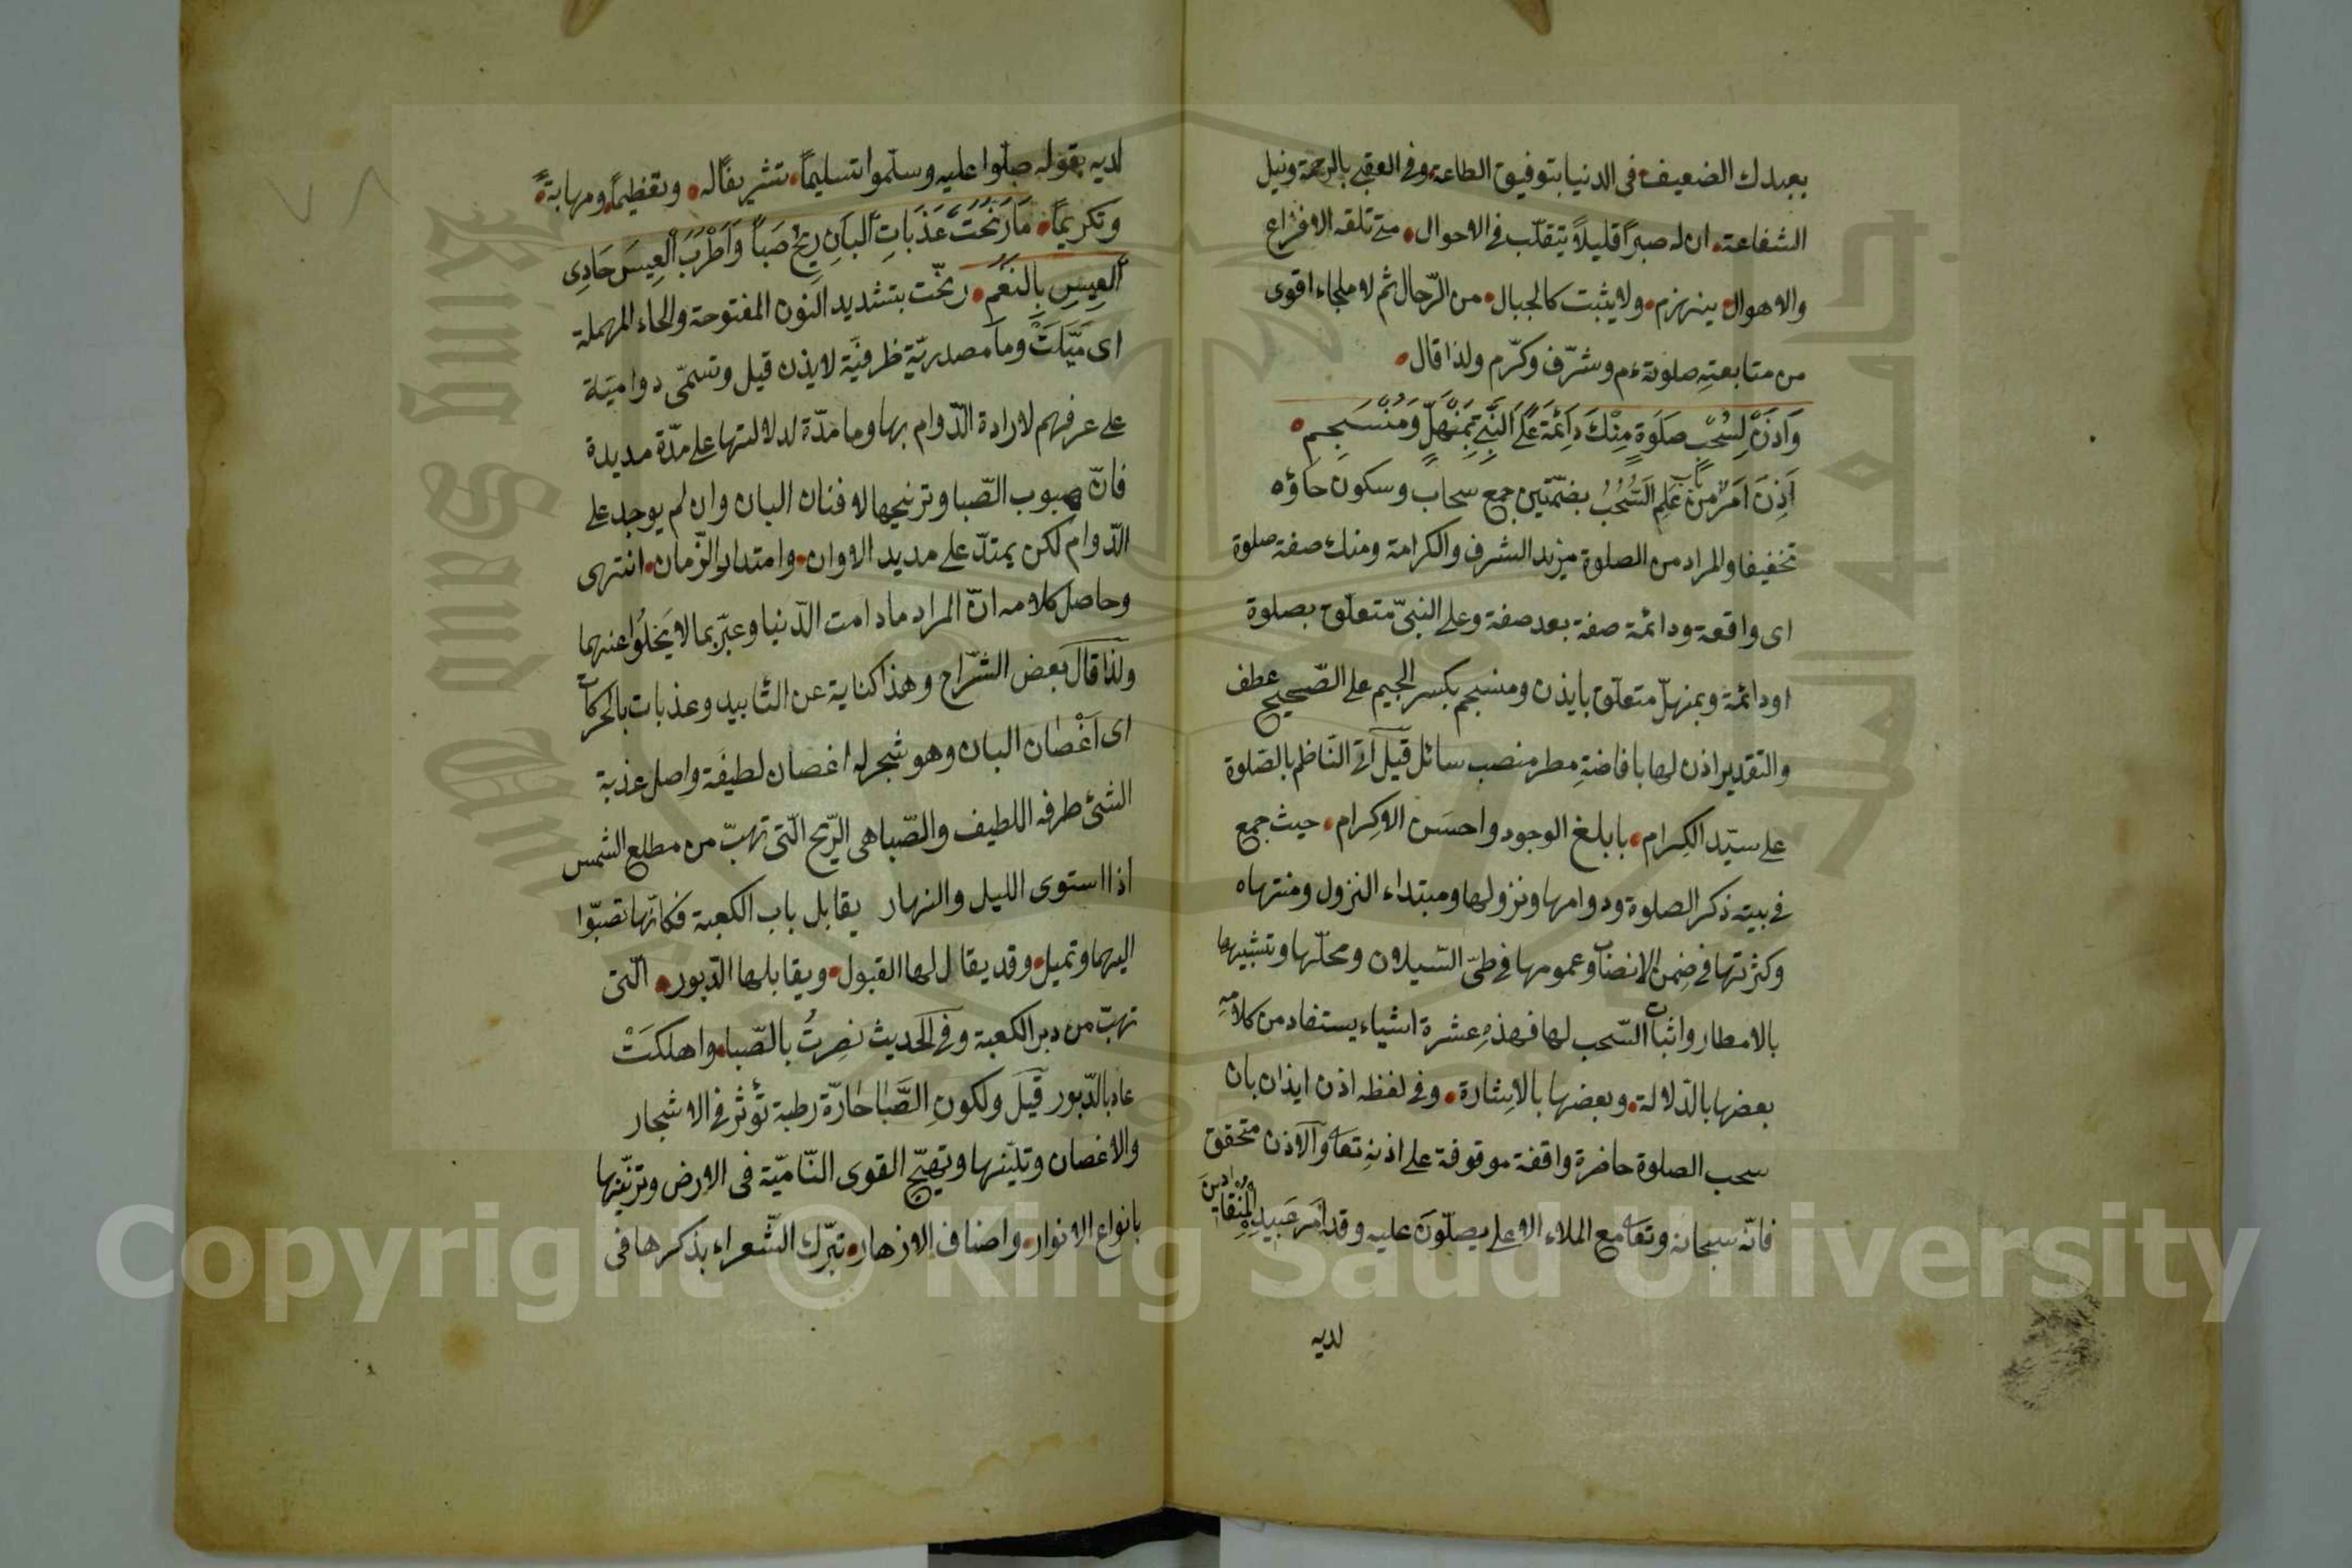 بعبدك الضعيف في الدنيا بتوفيق الطاعة وفي العقبى بالرحمة ونيل
الشفاعة ان له صبرا قليلاً يتقلّب في الاحوال متى تلقه الافزاع
والاهوال ينهزم ولا يثبت كالجبال من الرّجال ثم لا ملجاء اقوى
من متابعتِه صلوته م وشرّف وكرّم ولذا قال
وَاْذَنْ لِسُحْبِ صَلَوةٍ مِنْكَ دَائِمَةً عَلَى النَّبِيِّ بِمُنْهَلٍّ وَمُنْسَجِمِ
اَذِنَ اَمَرَ مِنْ بَابِ عَلِمَ السُّحُبُ بضمّتين جمع سحاب وسكون حاؤه
تخفيفا والمراد من الصلوة مزيد الشرف والكرامة ومنك صفة صلوة
اى واقعة ودائمة صفة بعد صفة وعلى النبيّ متعلّق بصلوة
او دائمة وبمنهلّ متعلّق بايذن ومنسجم بكسر الجيم على الصّحيح عطف
والتقدير اذن لها بافاضةِ مطر منصب سائل قيل اتى النّاظم بالصّلوة
على سيّد الكِرام بابلغ الوجود واحسَن الاكِرام حيث جمع
في بيته ذكر الصلوة ودوامها ونزولها ومبتداء النزول ومنتهاه
وكثرتها في ضِمن الانصاب وعمومها في طىّ السّيلان ومحلّها وتشبيهها
بالامطار واثبات السّحب لها فهذهِ عشرة اشياء يستفاد من كلامِهِ
بعضها بالدّلالة وبعضها بالاِشارة وفي لفظه اذن ايذان بان
سحب الصلوة حاضرة واقفة موقوفة على اذنهِ تعا والاذن متحقق
فانّه سبحانه وتعا مع الملاء الاعلى يصلّونَ عليه وقد اَمَر عَبيدِهِ المُنْقادينَ
لديه
لديه بقوله صلّوا عليه وسلّموا تسليماً تشريفًا له وتعظيماً ومهابةً
وتكريماً مَا رَنَّحَتْ عَذَبَاتِ الْبَانِ رِيحُ صَباً وَاَطْرَبَ الْعِيسَ حَادِى
الْعِيسِ بِالنَّغَمِ رنّحت بتشديد النون المفتوحة والحاء المهملة
اى مَيَّلَتْ وما مصدريّة ظرفيَّة لايذن قيل وتسمّى دواميّة
على عرفهم لارادة الدّوام بها وما مدّة لدلالتها على مدّة مديدة
فانّ هبوب الصّبا وترنيحها لافنان البان وان لم يوجد على
الدّوام لكن يمتدّ على مديد الاوان وامتداد الزّمان انتهى
وحاصل كلامه انّ المراد ما دامت الدّنيا وعبّر بما لا يَخلُوا عنهما
ولذا قال بعض الشّراح وهذا كناية عن التّأبيد وعذبات بالحركات
اى اَغْصان البان وهو شجر له اغصان لطيفة واصل عذبة
الشئ طرفه اللطيف والصّبا هي الرّيح الّتى تهبّ من مطلع الشمس
اذا استوى الليل والنهار يقابل باب الكعبة فكانّها تصبّوا
اليها وتميل وقد يقال لها القبول ويقابلها الدّبور الّتى
تهبّ من دبر الكعبة وفي الحديث نصِرتُ بالصّبا واهلكَتْ
عاد بالدّبور قيل ولكونِ الصَّبا حارّة رطبة تؤثّر في الاشجار
والاغصان وتليّنها وتهيّج القوى النّاميّة في الارض وتزيّنها
بانواع الانوار واصناف الازهار تبرّك الشّعراء بذكرها في
Copyright © King Saud University